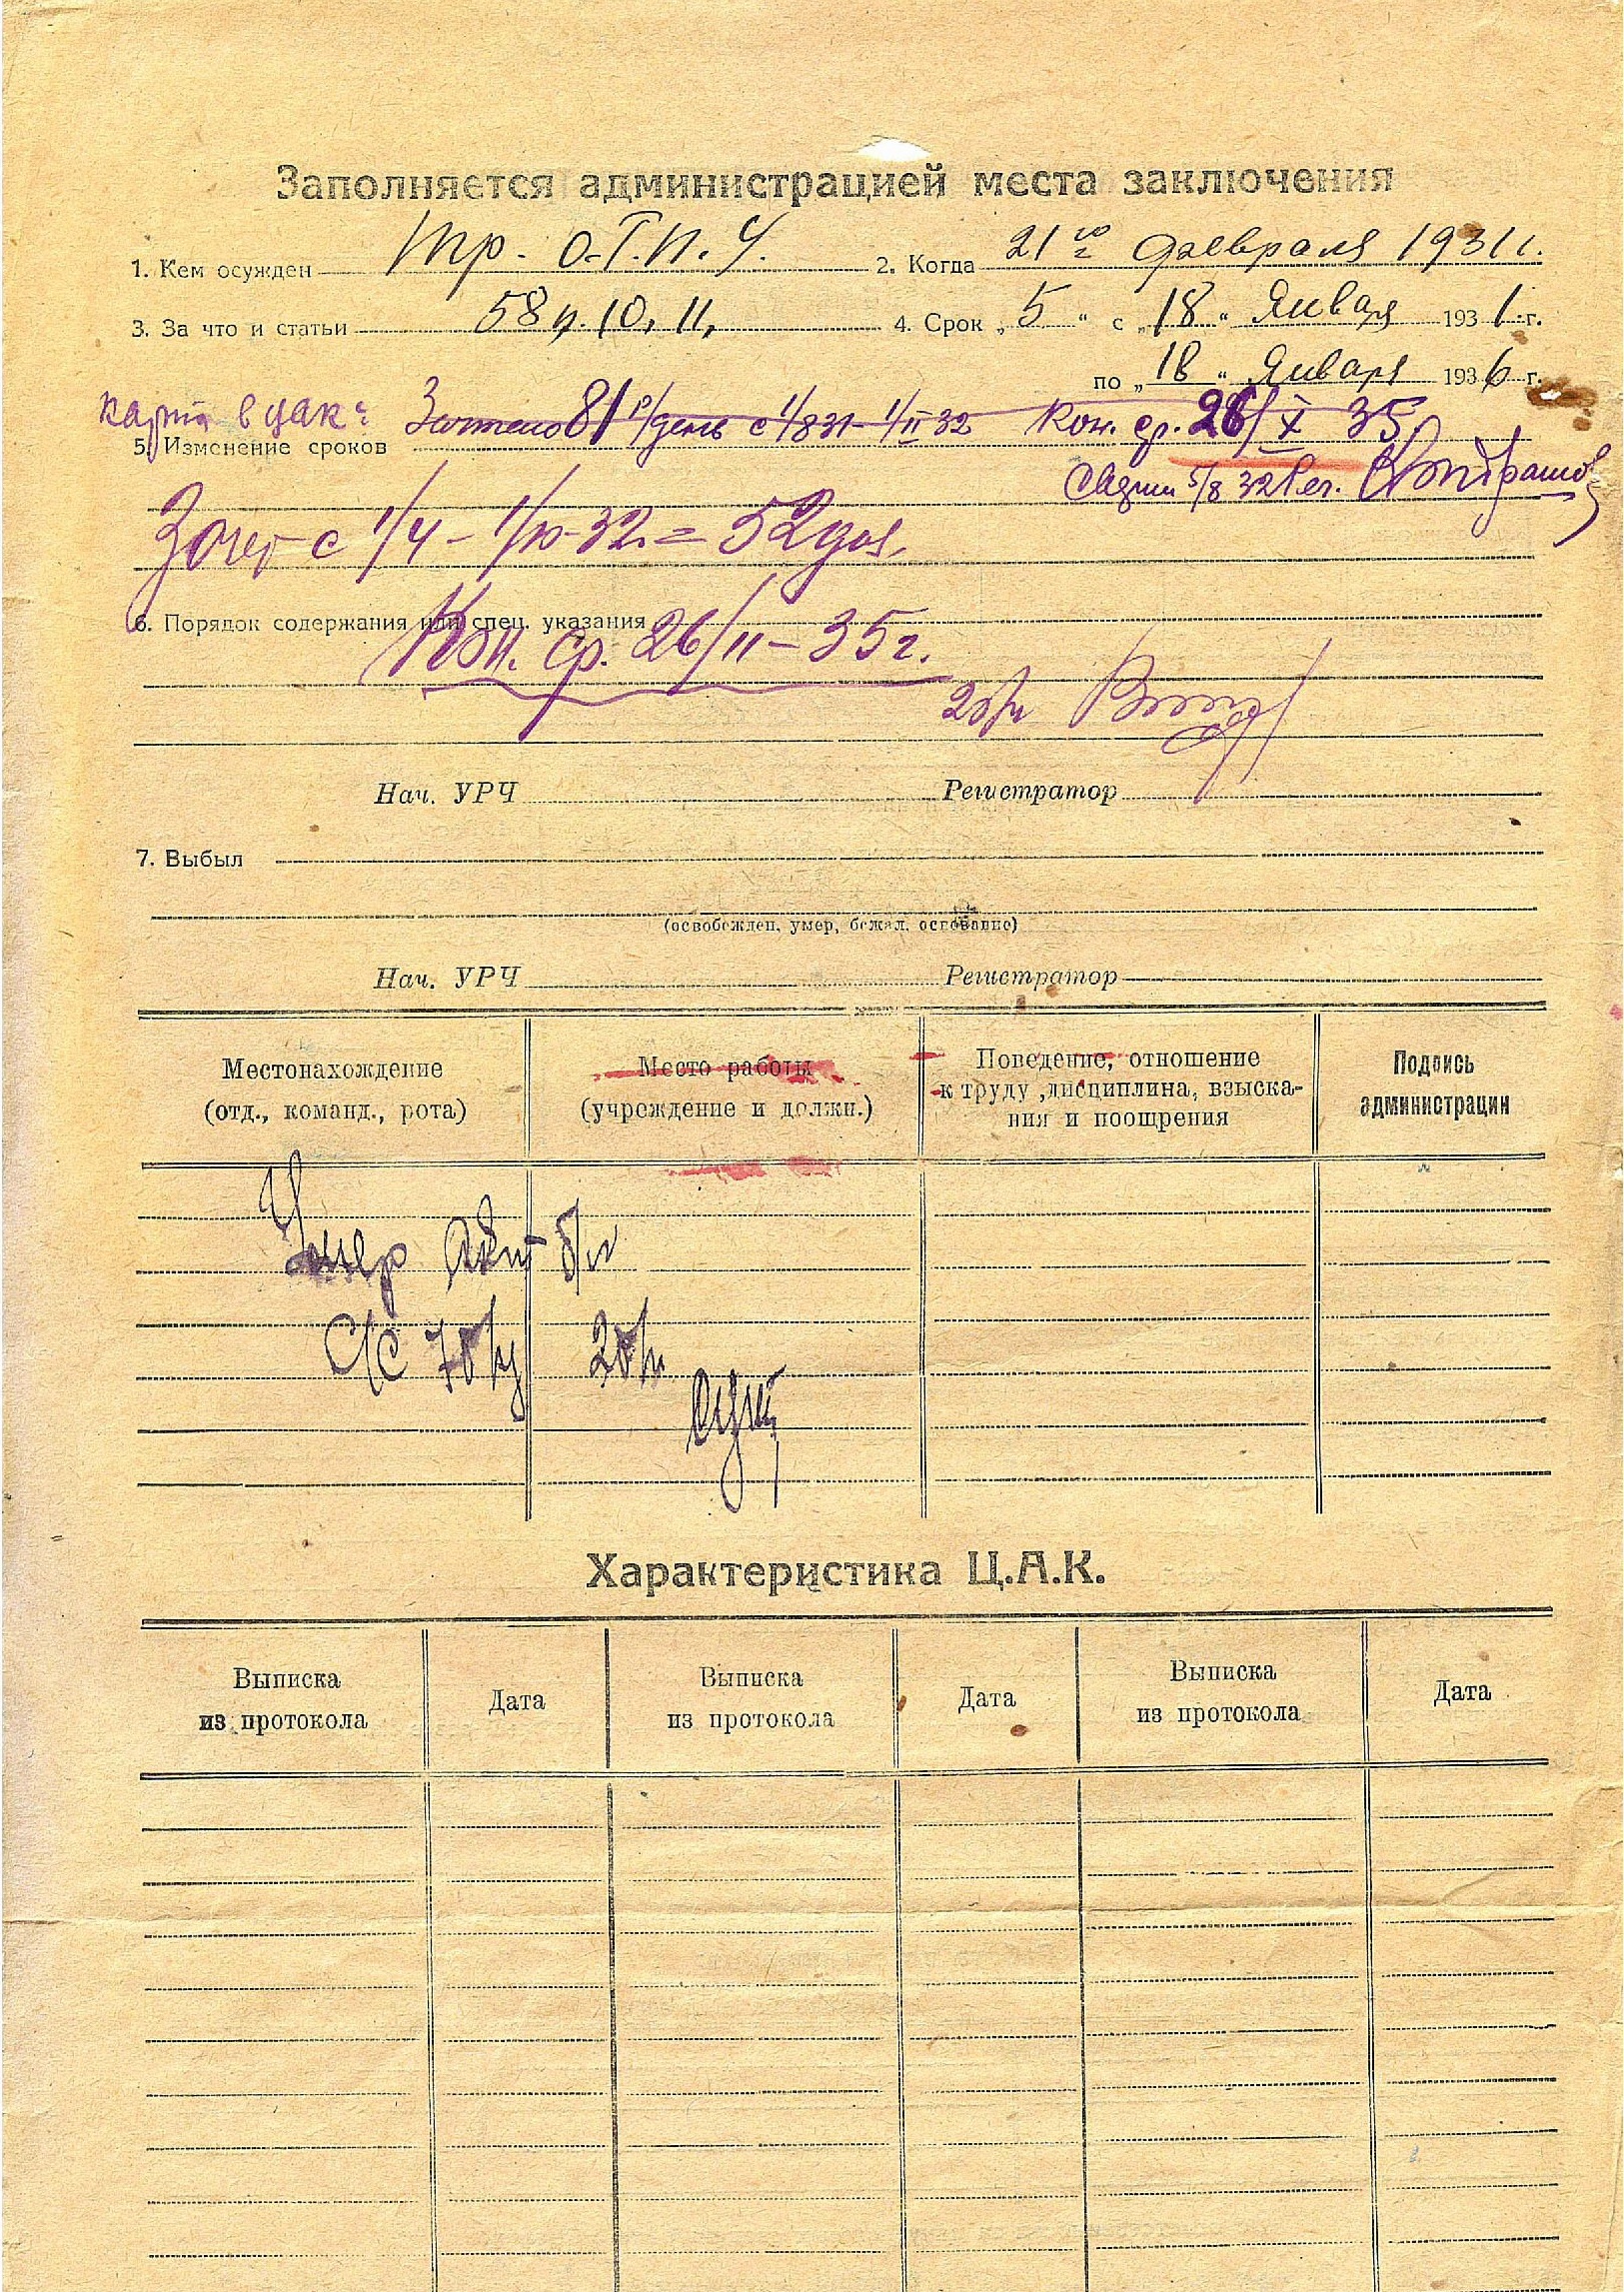 Заполняется администрацией места заключения
1. Кем осужден Тр. О.Г.П.У. 2. Когда 21го февраля 1931 г.
3. За что и статьи 58 п. 10, 11, 4. Срок „5“ с „18“ Января 1931 г.
по „18“ Января 1936 г.
карта в цак
5. Изменение сроков Зачтено 81 р/день с 1/8 31 - 1/II 32 Кон. ср. 26/X 35
5/8 32
Зачет с 1/4 - 1/10-32 = 52 дня.
6. Порядок содержания или спец. указания
Кон. ср. 26/11-35 г.
Нач. УРЧ Регистратор
7. Выбыл
(освобожден, умер, бежал, основание)
Нач. УРЧ Регистратор
Местонахождение
(отд., команд., рота)
Место работы
(учреждение и должн.)
Поведение, отношение
к труду, дисциплина, взыска-
ния и поощрения
Подпись
администрации
Умер
Характеристика Ц.А.К.
Выписка
из протокола
Дата
Выписка
из протокола
Дата
Выписка
из протокола
Дата